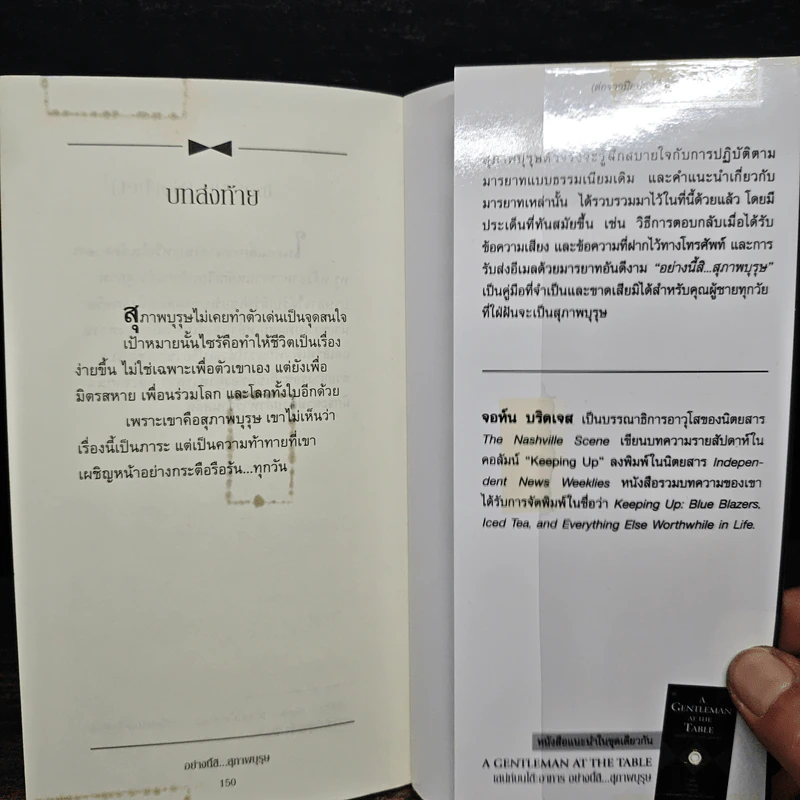 บทส่งท้าย
สุภาพบุรุษไม่เคยทำตัวเด่นเป็นจุดสนใจ
เป้าหมายนั้นไซร้คือทำให้ชีวิตเป็นเรื่อง
ง่ายขึ้น ไม่ใช่เฉพาะเพื่อตัวเขาเอง แต่ยังเพื่อ
มิตรสหาย เพื่อนร่วมโลก และโลกทั้งใบอีกด้วย
เพราะเขาคือสุภาพบุรุษ เขาไม่เห็นว่า
เรื่องนี้เป็นภาระ แต่เป็นความท้าทายที่เขา
เผชิญหน้าอย่างกระตือรือร้น...ทุกวัน
อย่างนี้สิ...สุภาพบุรุษ
150
สุภาพบุรุษตัวจริงจะรู้สึกสบายใจกับการปฏิบัติตาม
มารยาทแบบธรรมเนียมเดิม และคำแนะนำเกี่ยวกับ
มารยาทเหล่านั้น ได้รวบรวมมาไว้ในที่นี้ด้วยแล้ว โดยมี
ประเด็นที่ทันสมัยขึ้น เช่น วิธีการตอบกลับเมื่อได้รับ
ข้อความเสียง และข้อความที่ฝากไว้ทางโทรศัพท์ และการ
รับส่งอีเมลด้วยมารยาทอันดีงาม "อย่างนี้สิ...สุภาพบุรุษ"
เป็นคู่มือที่จำเป็นและขาดเสียมิได้สำหรับคุณผู้ชายทุกวัย
ที่ใฝ่ฝันจะเป็นสุภาพบุรุษ
จอห์น บริดเจส เป็นบรรณาธิการอาวุโสของนิตยสาร
The Nashville Scene เขียนบทความรายสัปดาห์ใน
คอลัมน์ "Keeping Up" ลงพิมพ์ในนิตยสาร Indepen-
dent News Weeklies หนังสือรวมบทความของเขา
ได้รับการจัดพิมพ์ในชื่อว่า Keeping Up: Blue Blazers,
Iced Tea, and Everything Else Worthwhile in Life.
A
GENTLEMAN
AT THE
TABLE
หนังสือแนะนำในชุดเดียวกัน
A GENTLEMAN AT THE TABLE
เสน่ห์บนโต๊ะอาหาร อย่างนี้สิ...สุภาพบุรุษ